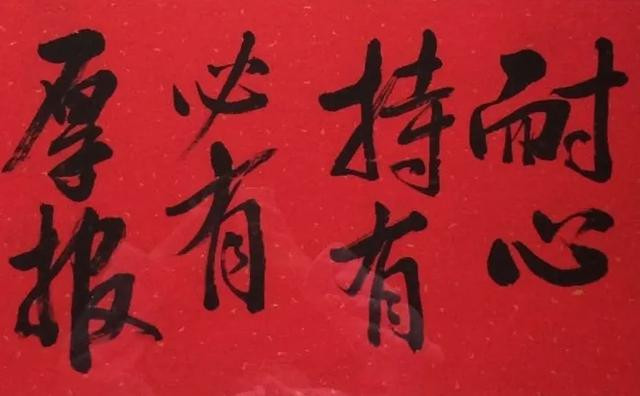 耐心
持有
必有
厚报